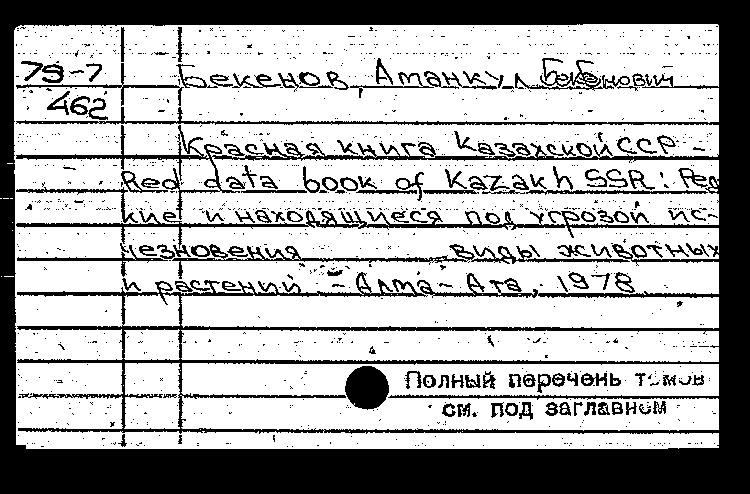 79-7 Бекенов, Аманкул
462
Красная книга Казахской ССР -
Red data book of Kazakh SSR: Ред
кие и находящиеся под угрозой ис-
чезновения виды животных
и растений - Алма-Ата, 1978
Полный перечень томов
см. под заглавием